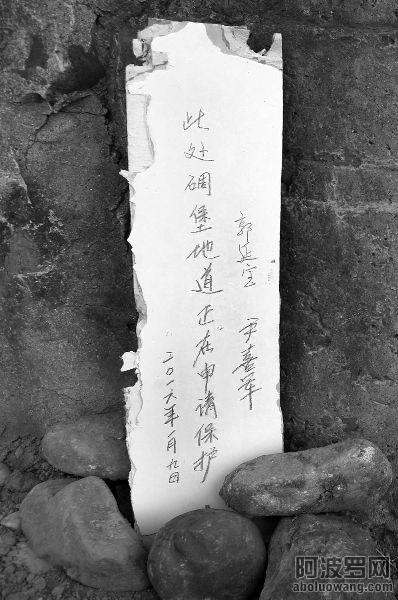 郭延宝 尹喜军
此处碉堡地道正在申请保护
二〇一六年一月九日
阿波罗网
aboluowang.com